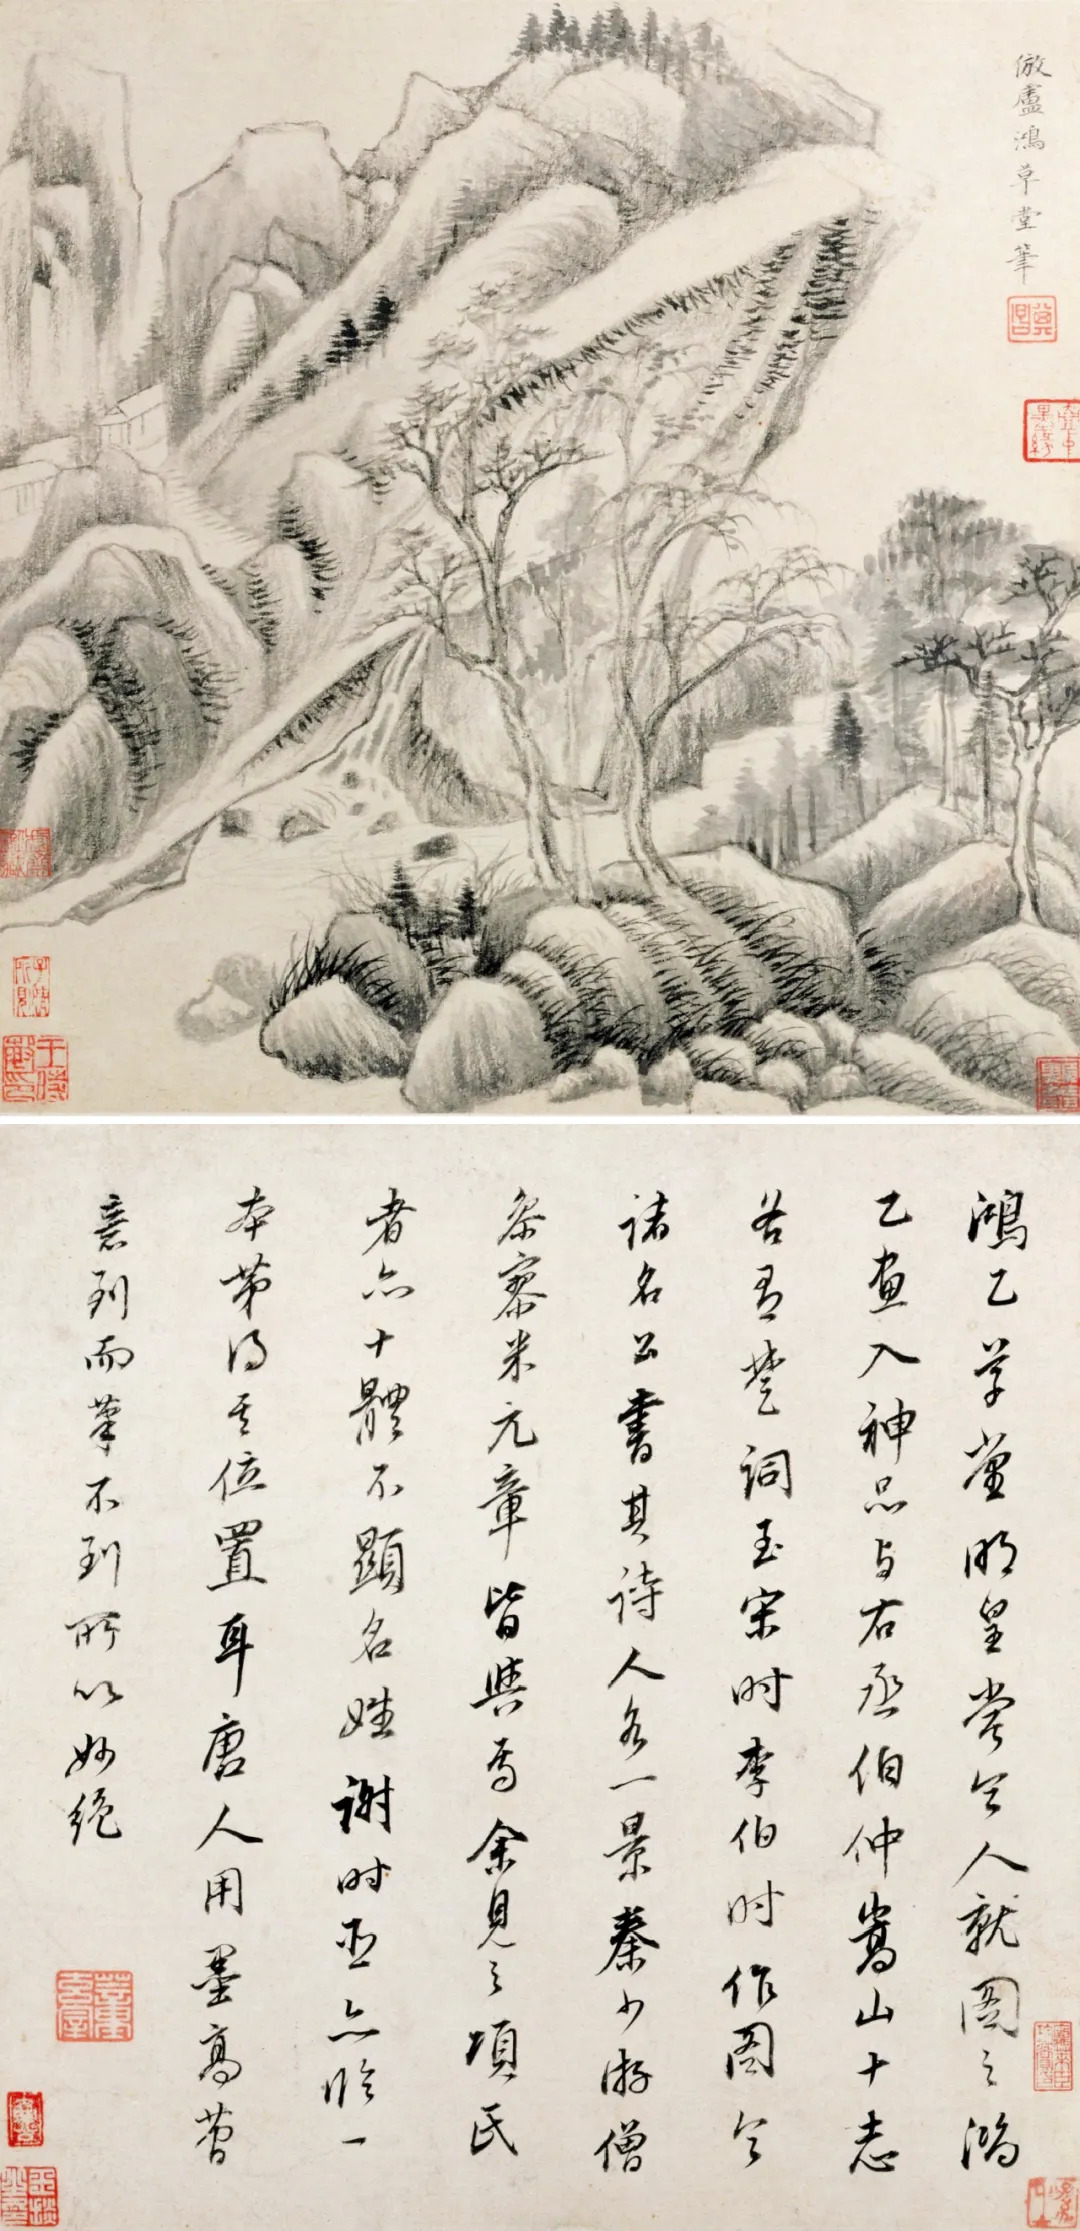 倣盧鴻草堂筆
其昌
鴻乙草堂明皇嘗令人就圖之鴻
乙畫入神品与右丞伯仲嵩山十志
各有楚詞至宋时李伯时作图令
諸名公書其詩人各一景秦少游僧
參寥米元章皆與焉余見之項氏
者亦十體不顯名姓謝时臣亦臨一
本第得其位置耳唐人用墨高簡
意到而筆不到所以妙絕